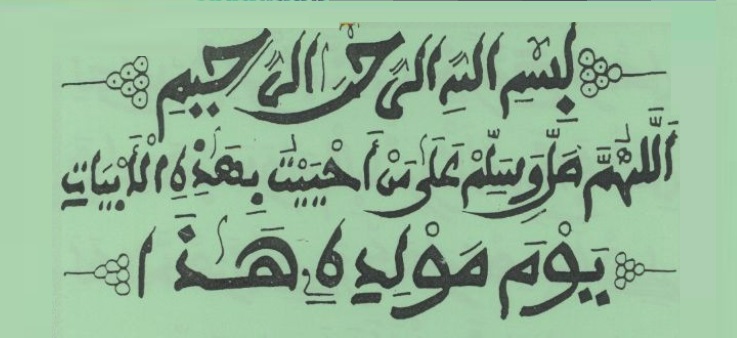 بِسْمِ اللهِ الرَّحْمٰنِ الرَّحِيمِ
اَللّٰهُمَّ صَلِّ وَسَلِّمْ عَلَى مَنْ أَحْيَيْتُ بِهَذِهِ الْأَبْيَاتِ
يَوْمَ مَوْلِدِهِ هَذَا